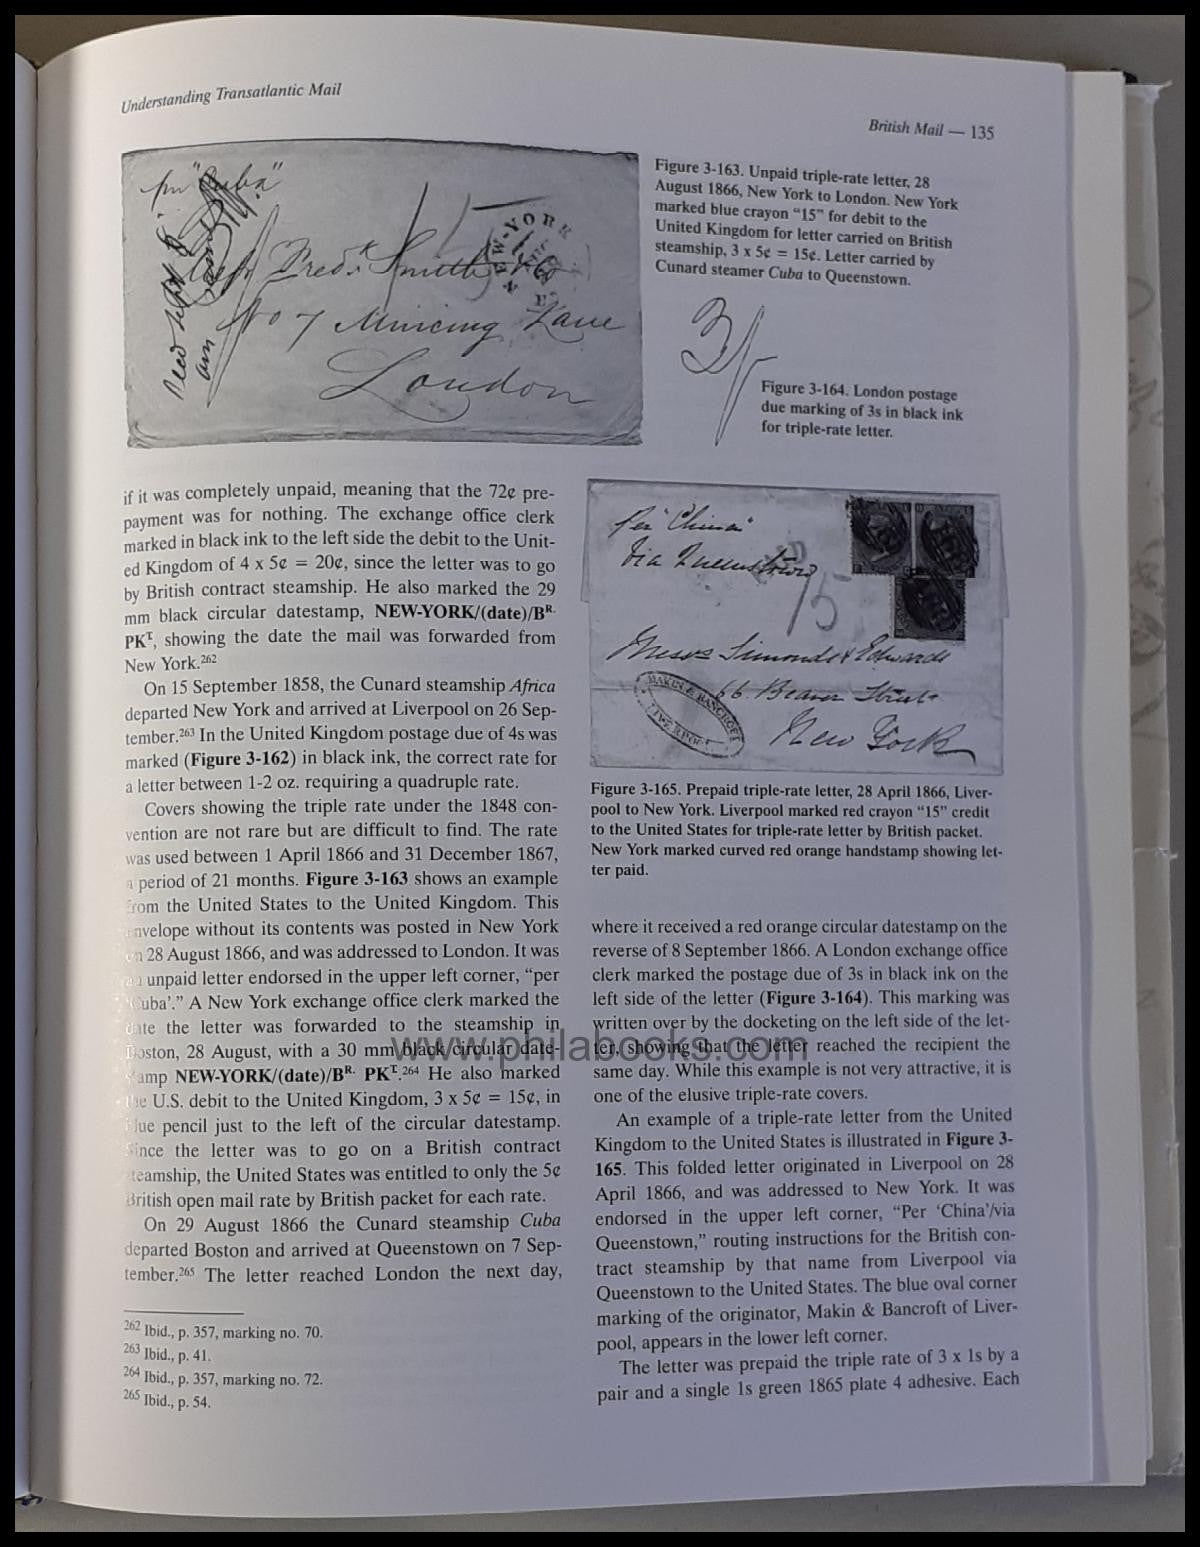 Understanding Transatlantic Mail
British Mail — 135
Per "Cuba"
Fred. Smith
No 7 Mincing Lane
London
NEW-YORK
15
Figure 3-163. Unpaid triple-rate letter, 28
August 1866, New York to London. New York
marked blue crayon “15” for debit to the
United Kingdom for letter carried on British
steamship, 3 x 5¢ = 15¢. Letter carried by
Cunard steamer Cuba to Queenstown.
3/
Figure 3-164. London postage
due marking of 3s in black ink
for triple-rate letter.
if it was completely unpaid, meaning that the 72¢ pre-
payment was for nothing. The exchange office clerk
marked in black ink to the left side the debit to the Unit-
ed Kingdom of 4 x 5¢ = 20¢, since the letter was to go
by British contract steamship. He also marked the 29
mm black circular datestamp, NEW-YORK/(date)/BR.
PKT, showing the date the mail was forwarded from
New York.262
On 15 September 1858, the Cunard steamship Africa
departed New York and arrived at Liverpool on 26 Sep-
tember.263 In the United Kingdom postage due of 4s was
marked (Figure 3-162) in black ink, the correct rate for
a letter between 1-2 oz. requiring a quadruple rate.
Covers showing the triple rate under the 1848 con-
vention are not rare but are difficult to find. The rate
was used between 1 April 1866 and 31 December 1867,
a period of 21 months. Figure 3-163 shows an example
from the United States to the United Kingdom. This
envelope without its contents was posted in New York
on 28 August 1866, and was addressed to London. It was
an unpaid letter endorsed in the upper left corner, “per
‘Cuba’.” A New York exchange office clerk marked the
date the letter was forwarded to the steamship in
Boston, 28 August, with a 30 mm black circular date-
stamp NEW-YORK/(date)/BR. PKT.264 He also marked
the U.S. debit to the United Kingdom, 3 x 5¢ = 15¢, in
blue pencil just to the left of the circular datestamp.
Since the letter was to go on a British contract
steamship, the United States was entitled to only the 5¢
British open mail rate by British packet for each rate.
On 29 August 1866 the Cunard steamship Cuba
departed Boston and arrived at Queenstown on 7 Sep-
tember.265 The letter reached London the next day,
262 Ibid., p. 357, marking no. 70.
263 Ibid., p. 41.
264 Ibid., p. 357, marking no. 72.
265 Ibid., p. 54.
Per "China"
Via Queenstown
15
Messrs Simonds & Edwards
66. Beaver Street
New York
MAKIN & BANCROFT
LIVERPOOL
Figure 3-165. Prepaid triple-rate letter, 28 April 1866, Liver-
pool to New York. Liverpool marked red crayon “15” credit
to the United States for triple-rate letter by British packet.
New York marked curved red orange handstamp showing let-
ter paid.
where it received a red orange circular datestamp on the
reverse of 8 September 1866. A London exchange office
clerk marked the postage due of 3s in black ink on the
left side of the letter (Figure 3-164). This marking was
written over by the docketing on the left side of the let-
ter, showing that the letter reached the recipient the
same day. While this example is not very attractive, it is
one of the elusive triple-rate covers.
An example of a triple-rate letter from the United
Kingdom to the United States is illustrated in Figure 3-
165. This folded letter originated in Liverpool on 28
April 1866, and was addressed to New York. It was
endorsed in the upper left corner, “Per ‘China’/via
Queenstown,” routing instructions for the British con-
tract steamship by that name from Liverpool via
Queenstown to the United States. The blue oval corner
marking of the originator, Makin & Bancroft of Liver-
pool, appears in the lower left corner.
The letter was prepaid the triple rate of 3 x 1s by a
pair and a single 1s green 1865 plate 4 adhesive. Each
www.philabooks.com